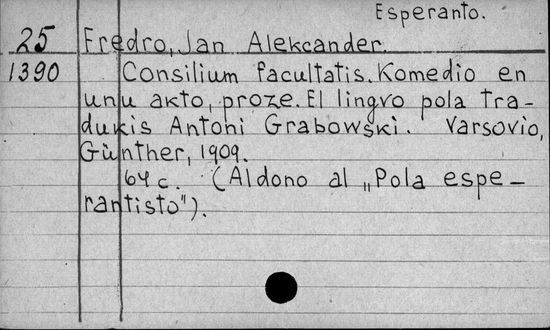 Esperanto.
25 Fredro, Jan Alekcander.
1390 Consilium facultatis. Komedio en
unu akto, proze. El lingvo pola tra-
dukis Antoni Grabowski. Varsovio,
Günther, 1909.
64 c. (Aldono al „Pola espe-
rantisto").